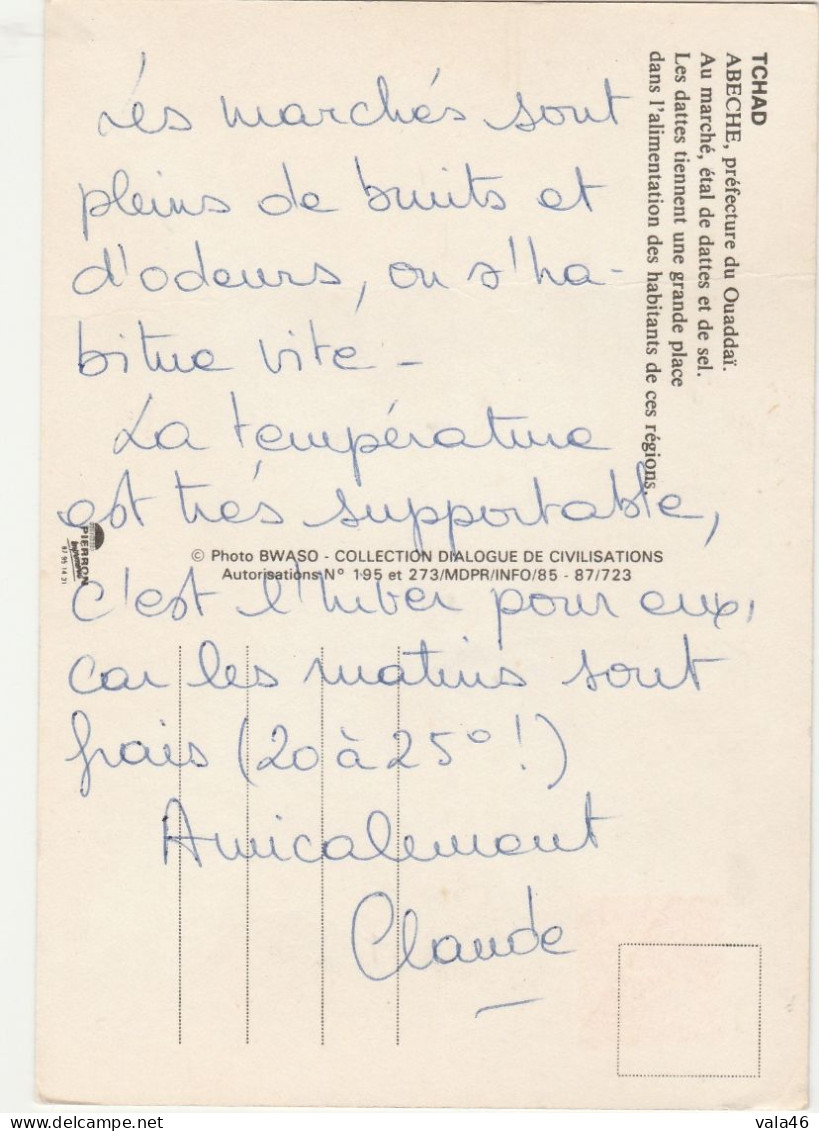 TCHAD
ABECHE, préfecture du Ouaddaï.
Au marché, étal de dattes et de sel.
Les dattes tiennent une grande place
dans l'alimentation des habitants de ces régions.
Les marchés sont
pleins de bruits et
d'odeurs, on s'ha-
bitue vite -
La température
est très supportable,
© Photo BWASO - COLLECTION DIALOGUE DE CIVILISATIONS
Autorisations N° 195 et 273/MDPR/INFO/85 - 87/723
PIERRON
Imprimeur
87 95 14 21
c'est l'hiver pour eux,
car les matins sont
frais (20 à 25° !)
Amicalement
Claude
vala46